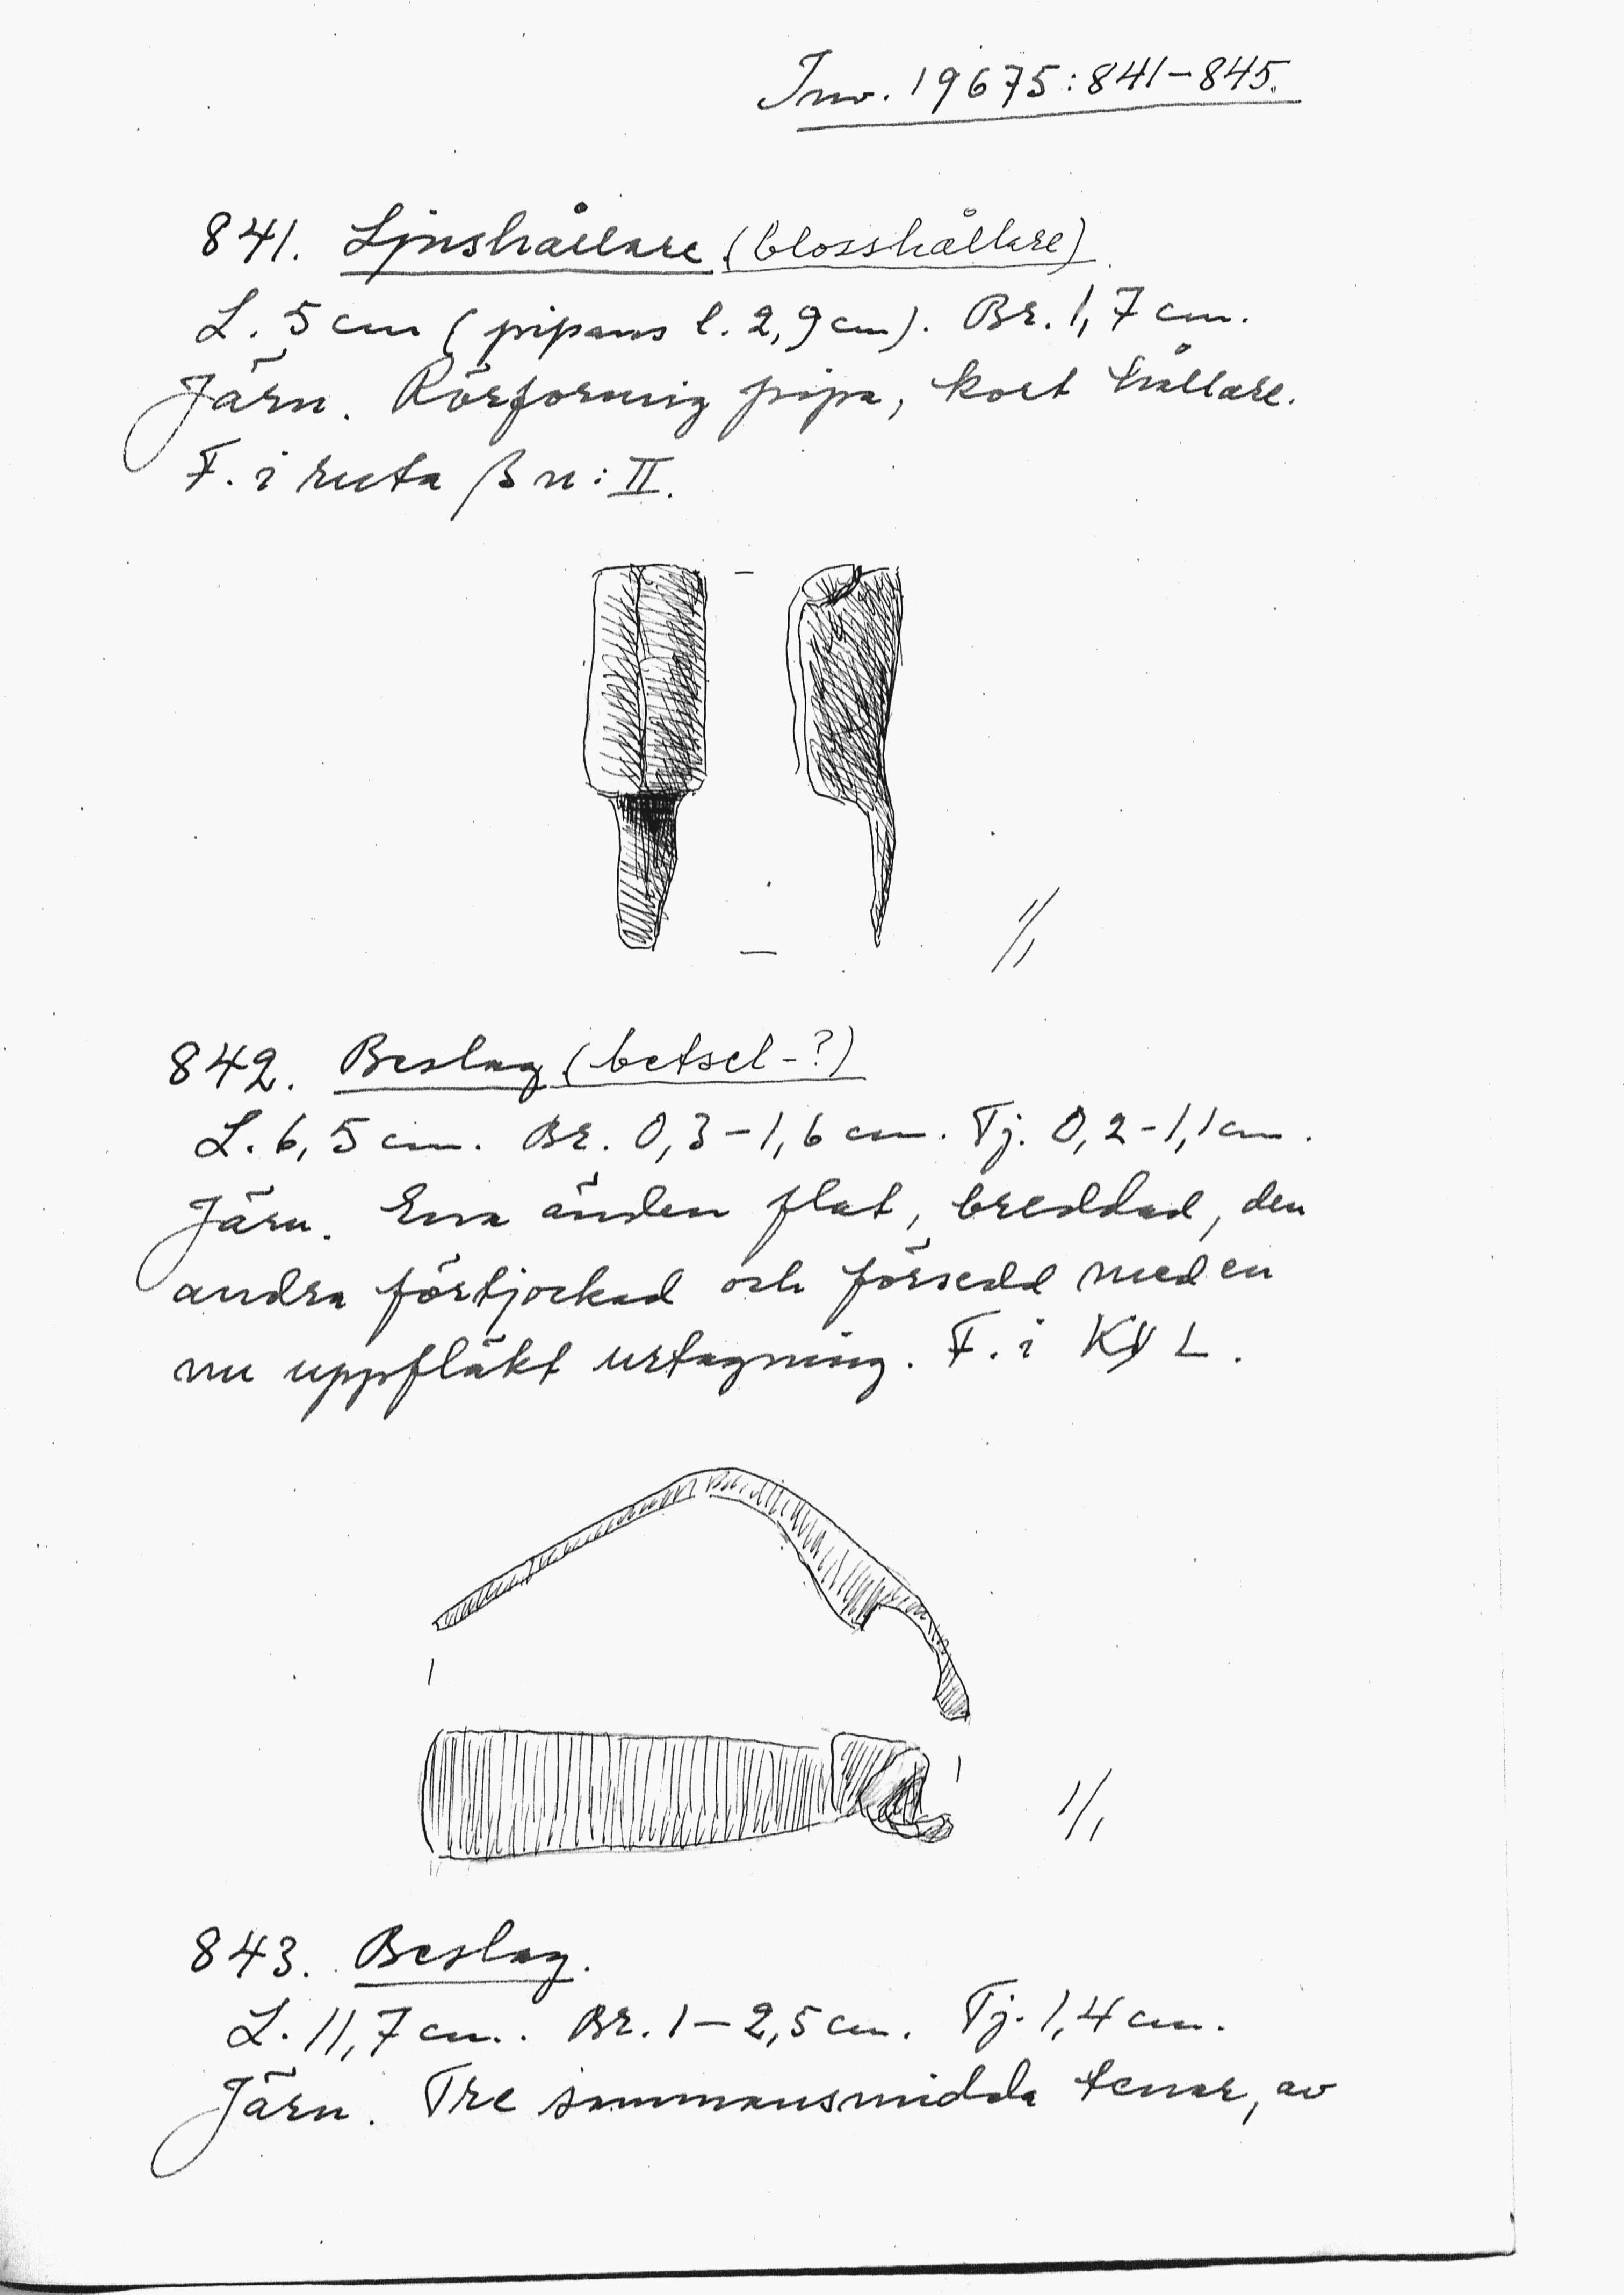 Inv. 19675:841–845.
841. Ljushållare (blosshållare)
L. 5 cm (pipans l. 2,9 cm). Br. 1,7 cm.
Järn. Rörformig pipa, kort hållare.
F. i ruta β n: II.
1/1
842. Beslag (betsel-?)
L. 6,5 cm. Br. 0,3–1,6 cm. Tj. 0,2–1,1 cm.
Järn. Ena änden flat, breddad, den
andra förtjockad och försedd med en
nu uppfläkt urtagning. F. i L.
1/1
843. Beslag.
L. 11,7 cm. Br. 1–2,5 cm. Tj. 1,4 cm.
Järn. Tre sammansmidda tenar, av